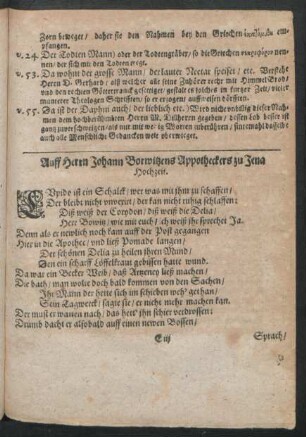 Zorn seweget / daher sie den Nahmen bey den Griechen empfangen.
v. 24. Der Todten Mann) oder der Todtengräber / so die Griechen nennen / der sich mit den Todten
v. 53. Da wohnt der grosse Mann / der lauter Nectar speiset / etc. Versteht
Herrn D. Gerhard / als welcher alle seine Zuhörer recht mit Himmel Brod /
und den rechten Götterwein gespeiset / gestalt es solches in kurzer Zeit / vieler
munterer Theologen Schrifften / so er ausgehen
v. 55. Da ist der Daphnis auch / der lieblich etc.) Wird nicht vnbillig dieser Nahmen
dem hochberühmten Herrn M. Dilherrn gegeben / dessen Lob besser ist
ganz zuverschweigen / als mit mir wenig Worten anberühren / sintemahl dasselbe
auch alle Menschliche Gedancken weit übertrifft.
Auff Herrn Johann Borwitzens Appotheckers zu Jena
Hochzeit.
CUpido ist ein Schalck / wer was mit ihm zu schaffen /
Der bleibt nicht unverirt / der kan nicht ruhig schlaffen:
Diß weiß der Corydon / diß weiß die Delia /
Herr Bowitz / wie mit euch / ich weiß ihr sprechet Ja.
Denn als er newlich noch kam auff der Post gegangen
Hier in die Apothec / und ließ Pomade langen /
Der schönen Delia zu heilen ihren Mund /
Den ein scharff Löffelkraut gebissen hatte wund.
Da war ein Becker Weib / daß Artzeney ließ machen /
Die bath / man wolte doch bald kommen von den Sachen /
Ihr Mann der hette sich im schieben weh gethan /
Sein Tagwerck / sagte sie / er nicht mehr machen kan.
Der must er warten nach / das hett' ihn schier verdrossen /
Drumb dacht er alsobald auff einen newen Bossen /
E iij
Sprach /